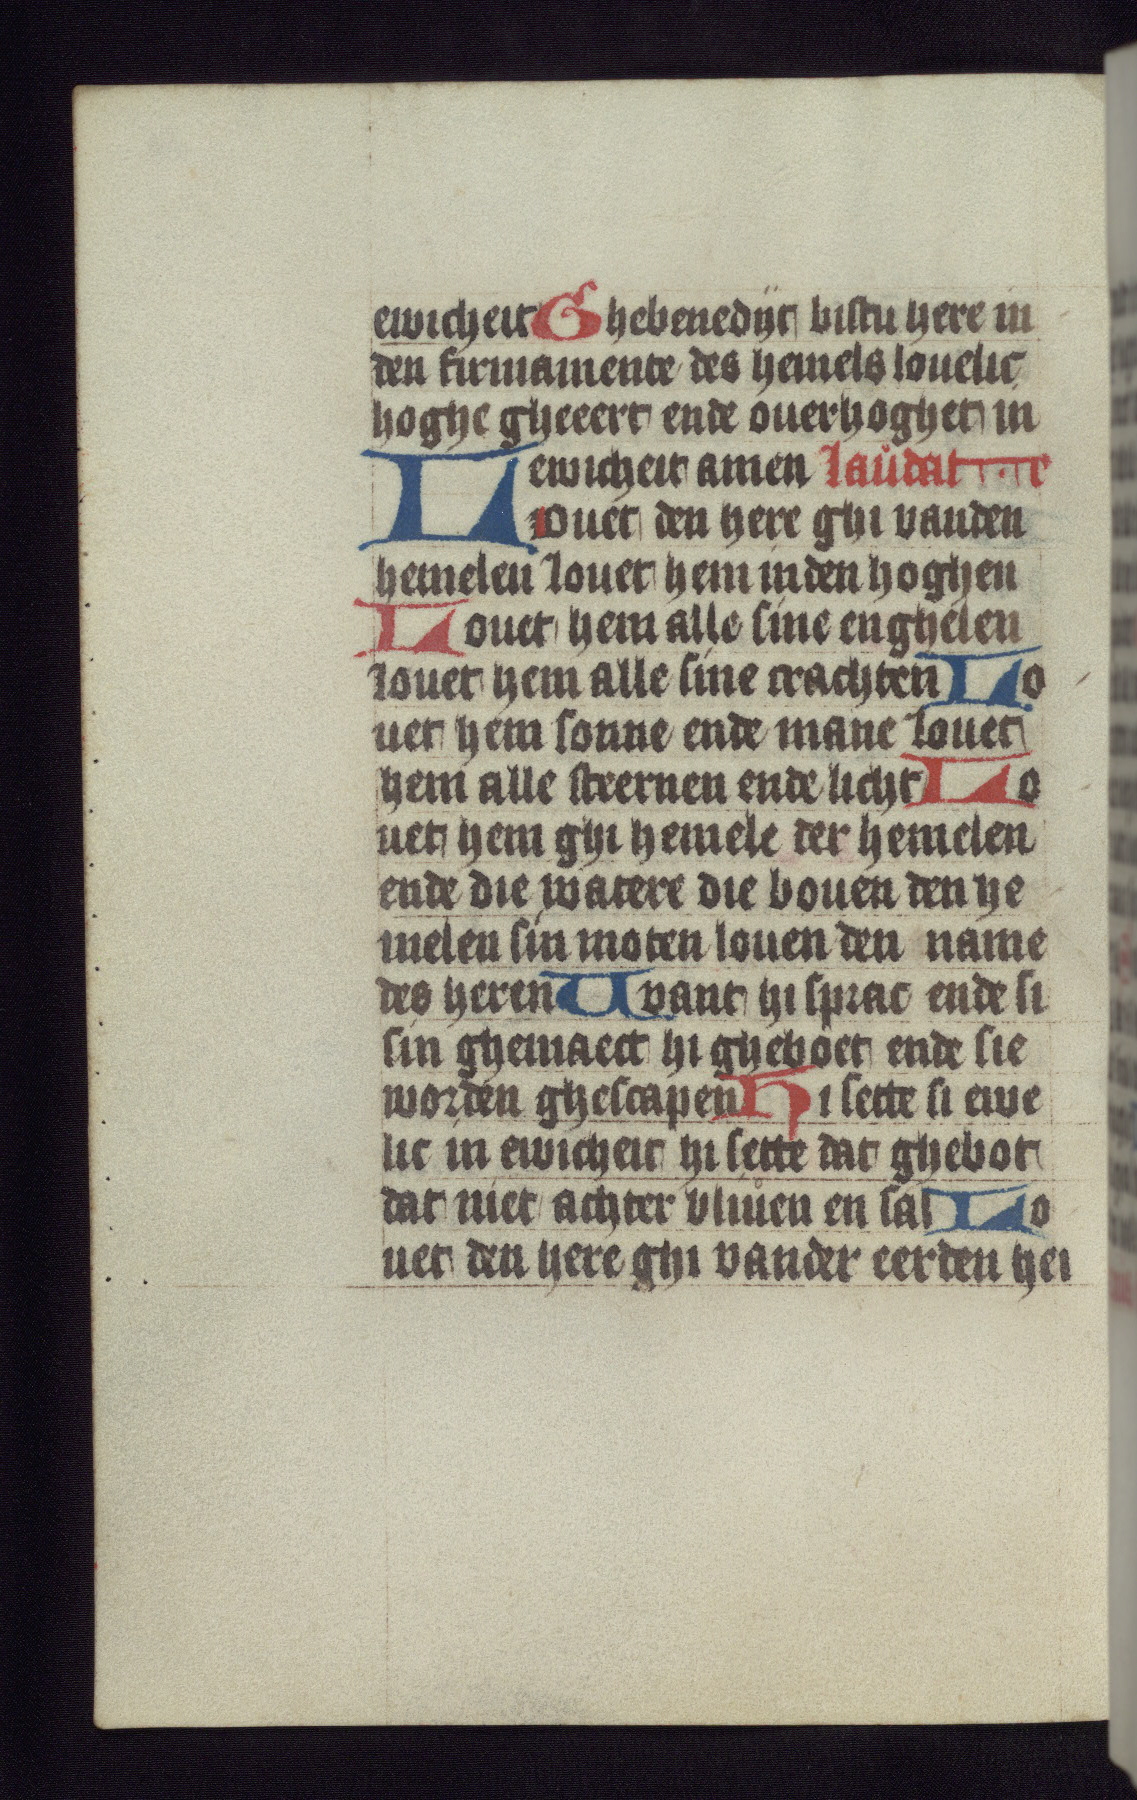 ewicheit Ghebenedijt bistu here in
den firmamente des hemels louelic
hoghe gheeert ende ouerhoghet in
ewicheit amen laudate
Louet den here ghi vanden
hemelen louet hem inden hoghen
Louet hem alle sine enghelen
louet hem alle sine crachten Lo
uet hem sonne ende mane louet
hem alle steernen ende licht Lo
uet hem ghi hemele der hemelen
ende die watere die bouen den he
melen sin moten louen den name
des heren Want hi sprac ende si
sin ghemaect hi gheboet ende sie
worden ghescapen Hi sette si ewe
lic in ewicheit hi sette dat ghebot
dat niet achter bliuen en sal Lo
uet den here ghi vander eerden hei